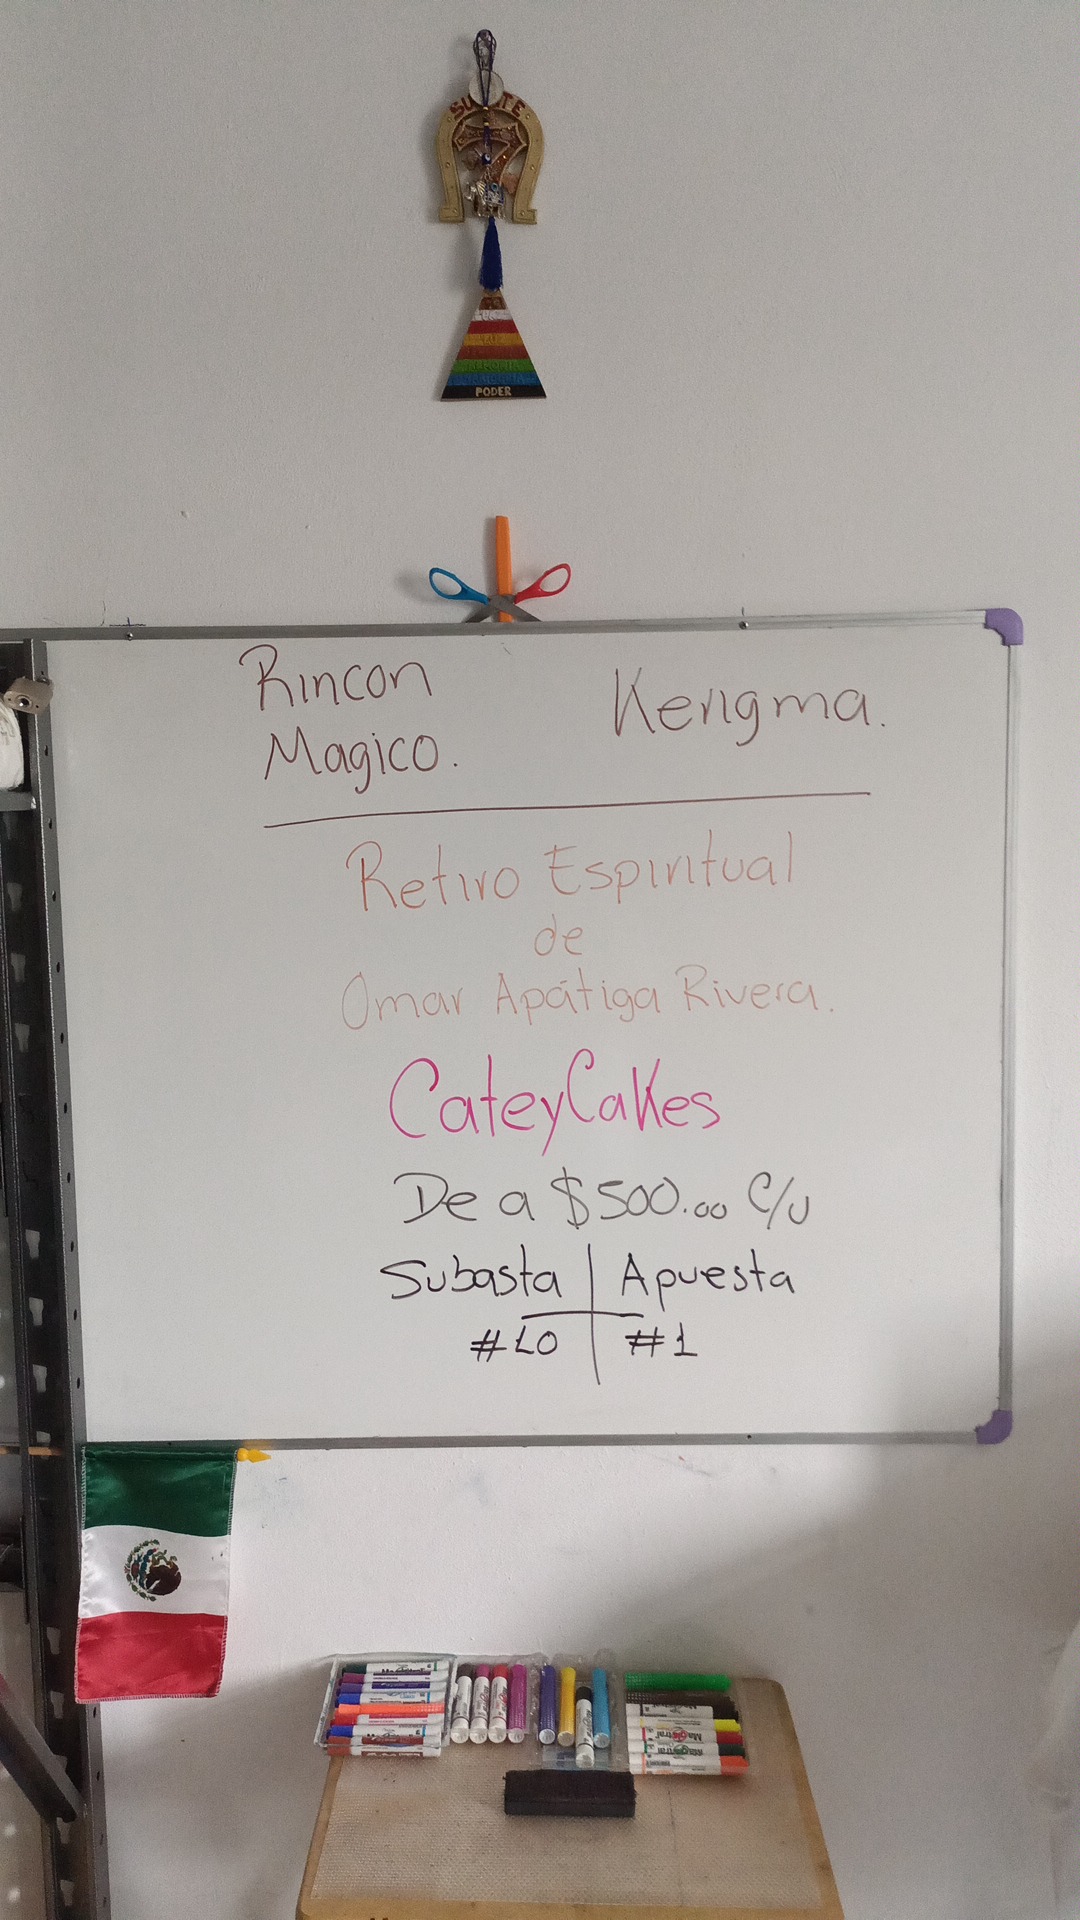 SUERTE
PODER
Rincon
Magico.
Kerigma.
Retiro Espiritual
de
Omar Apátiga Rivera.
CateyCakes
De a $500.00 C/U
Subasta | Apuesta
#10 | #1
Magistral